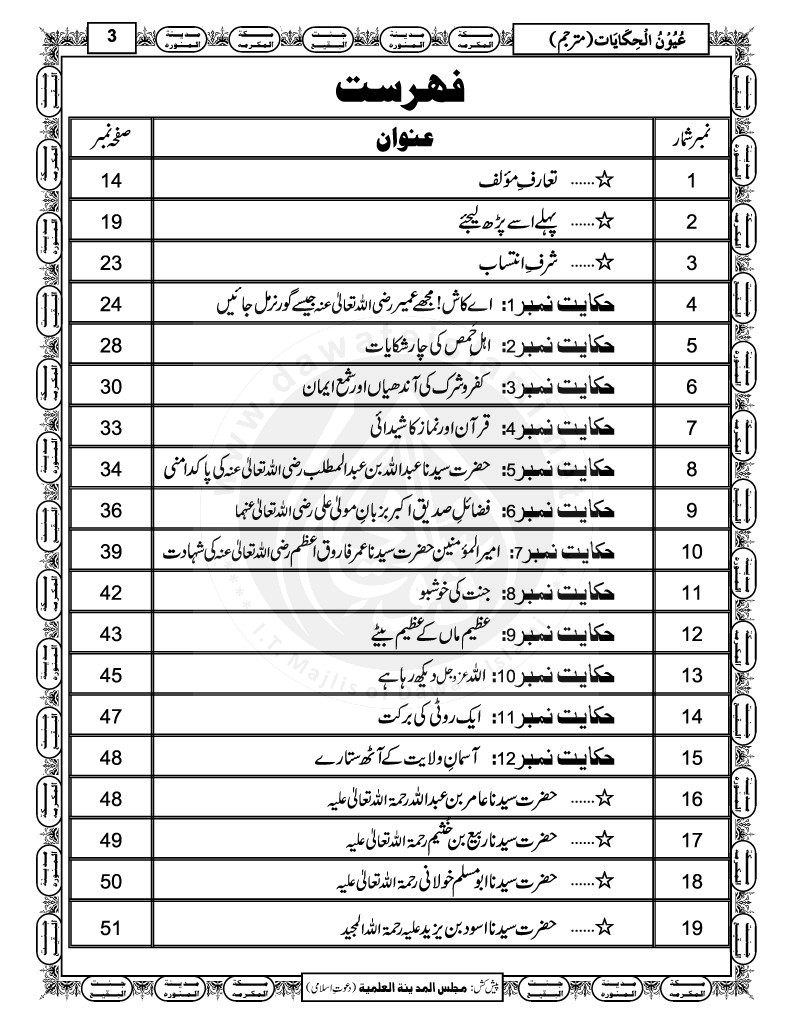 عُیُوْنُ الْحِکَایَات (مترجم)
3
فہرست
نمبر شمار عنوان صفحہ نمبر
1 ☆...... تعارفِ مؤلف 14
2 ☆...... پہلے اسے پڑھ لیجئے 19
3 ☆...... شرفِ انتساب 23
4 حکایت نمبر 1: اے کاش! مجھے عمیر رضی اللہ تعالیٰ عنہ جیسے گورنر مل جائیں 24
5 حکایت نمبر 2: اہلِ حِمص کی چار شکایات 28
6 حکایت نمبر 3: کفر و شرک کی آندھیاں اور شمعِ ایمان 30
7 حکایت نمبر 4: قرآن اور نماز کا شیدائی 33
8 حکایت نمبر 5: حضرت سیدنا عبداللہ بن عبدالمطلب رضی اللہ تعالیٰ عنہ کی پاکدامنی 34
9 حکایت نمبر 6: فضائلِ صدیق اکبر بزبانِ مولیٰ علی رضی اللہ تعالیٰ عنہما 36
10 حکایت نمبر 7: امیر المؤمنین حضرت سیدنا عمر فاروق اعظم رضی اللہ تعالیٰ عنہ کی شہادت 39
11 حکایت نمبر 8: جنت کی خوشبو 42
12 حکایت نمبر 9: عظیم ماں کے عظیم بیٹے 43
13 حکایت نمبر 10: اللہ عزوجل دیکھ رہا ہے 45
14 حکایت نمبر 11: ایک روٹی کی برکت 47
15 حکایت نمبر 12: آسمانِ ولایت کے آٹھ ستارے 48
16 ☆...... حضرت سیدنا عامر بن عبداللہ رحمۃ اللہ تعالیٰ علیہ 48
17 ☆...... حضرت سیدنا ربیع بن خُثَیم رحمۃ اللہ تعالیٰ علیہ 49
18 ☆...... حضرت سیدنا ابو مسلم خولانی رحمۃ اللہ تعالیٰ علیہ 50
19 ☆...... حضرت سیدنا اسود بن یزید علیہ رحمۃ اللہ المجید 51
پیش کش: مجلس المدینۃ العلمیۃ (دعوتِ اسلامی)